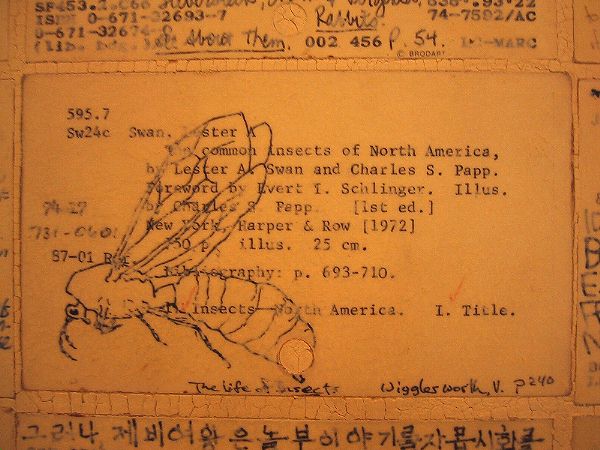 ISBN 0-671-32693-7 Rabbits 74-7592/AC
0-671-3267 about Them. 002 456 p. 54. MARC
© BRODART
595.7
Sw24c Swan, Lester A
common insects of North America,
by Lester A. Swan and Charles S. Papp.
Foreword by Evert I. Schlinger. Illus.
by Charles S. Papp. [1st ed.]
New York, Harper & Row [1972]
750 p. illus. 25 cm.
87-01
Bibliography: p. 693-710.
1. Insects—North America. I. Title.
The Life of Insects Wigglesworth, V. p 240
그러나, 제비여왕은 놀부이야기를 자못시화를